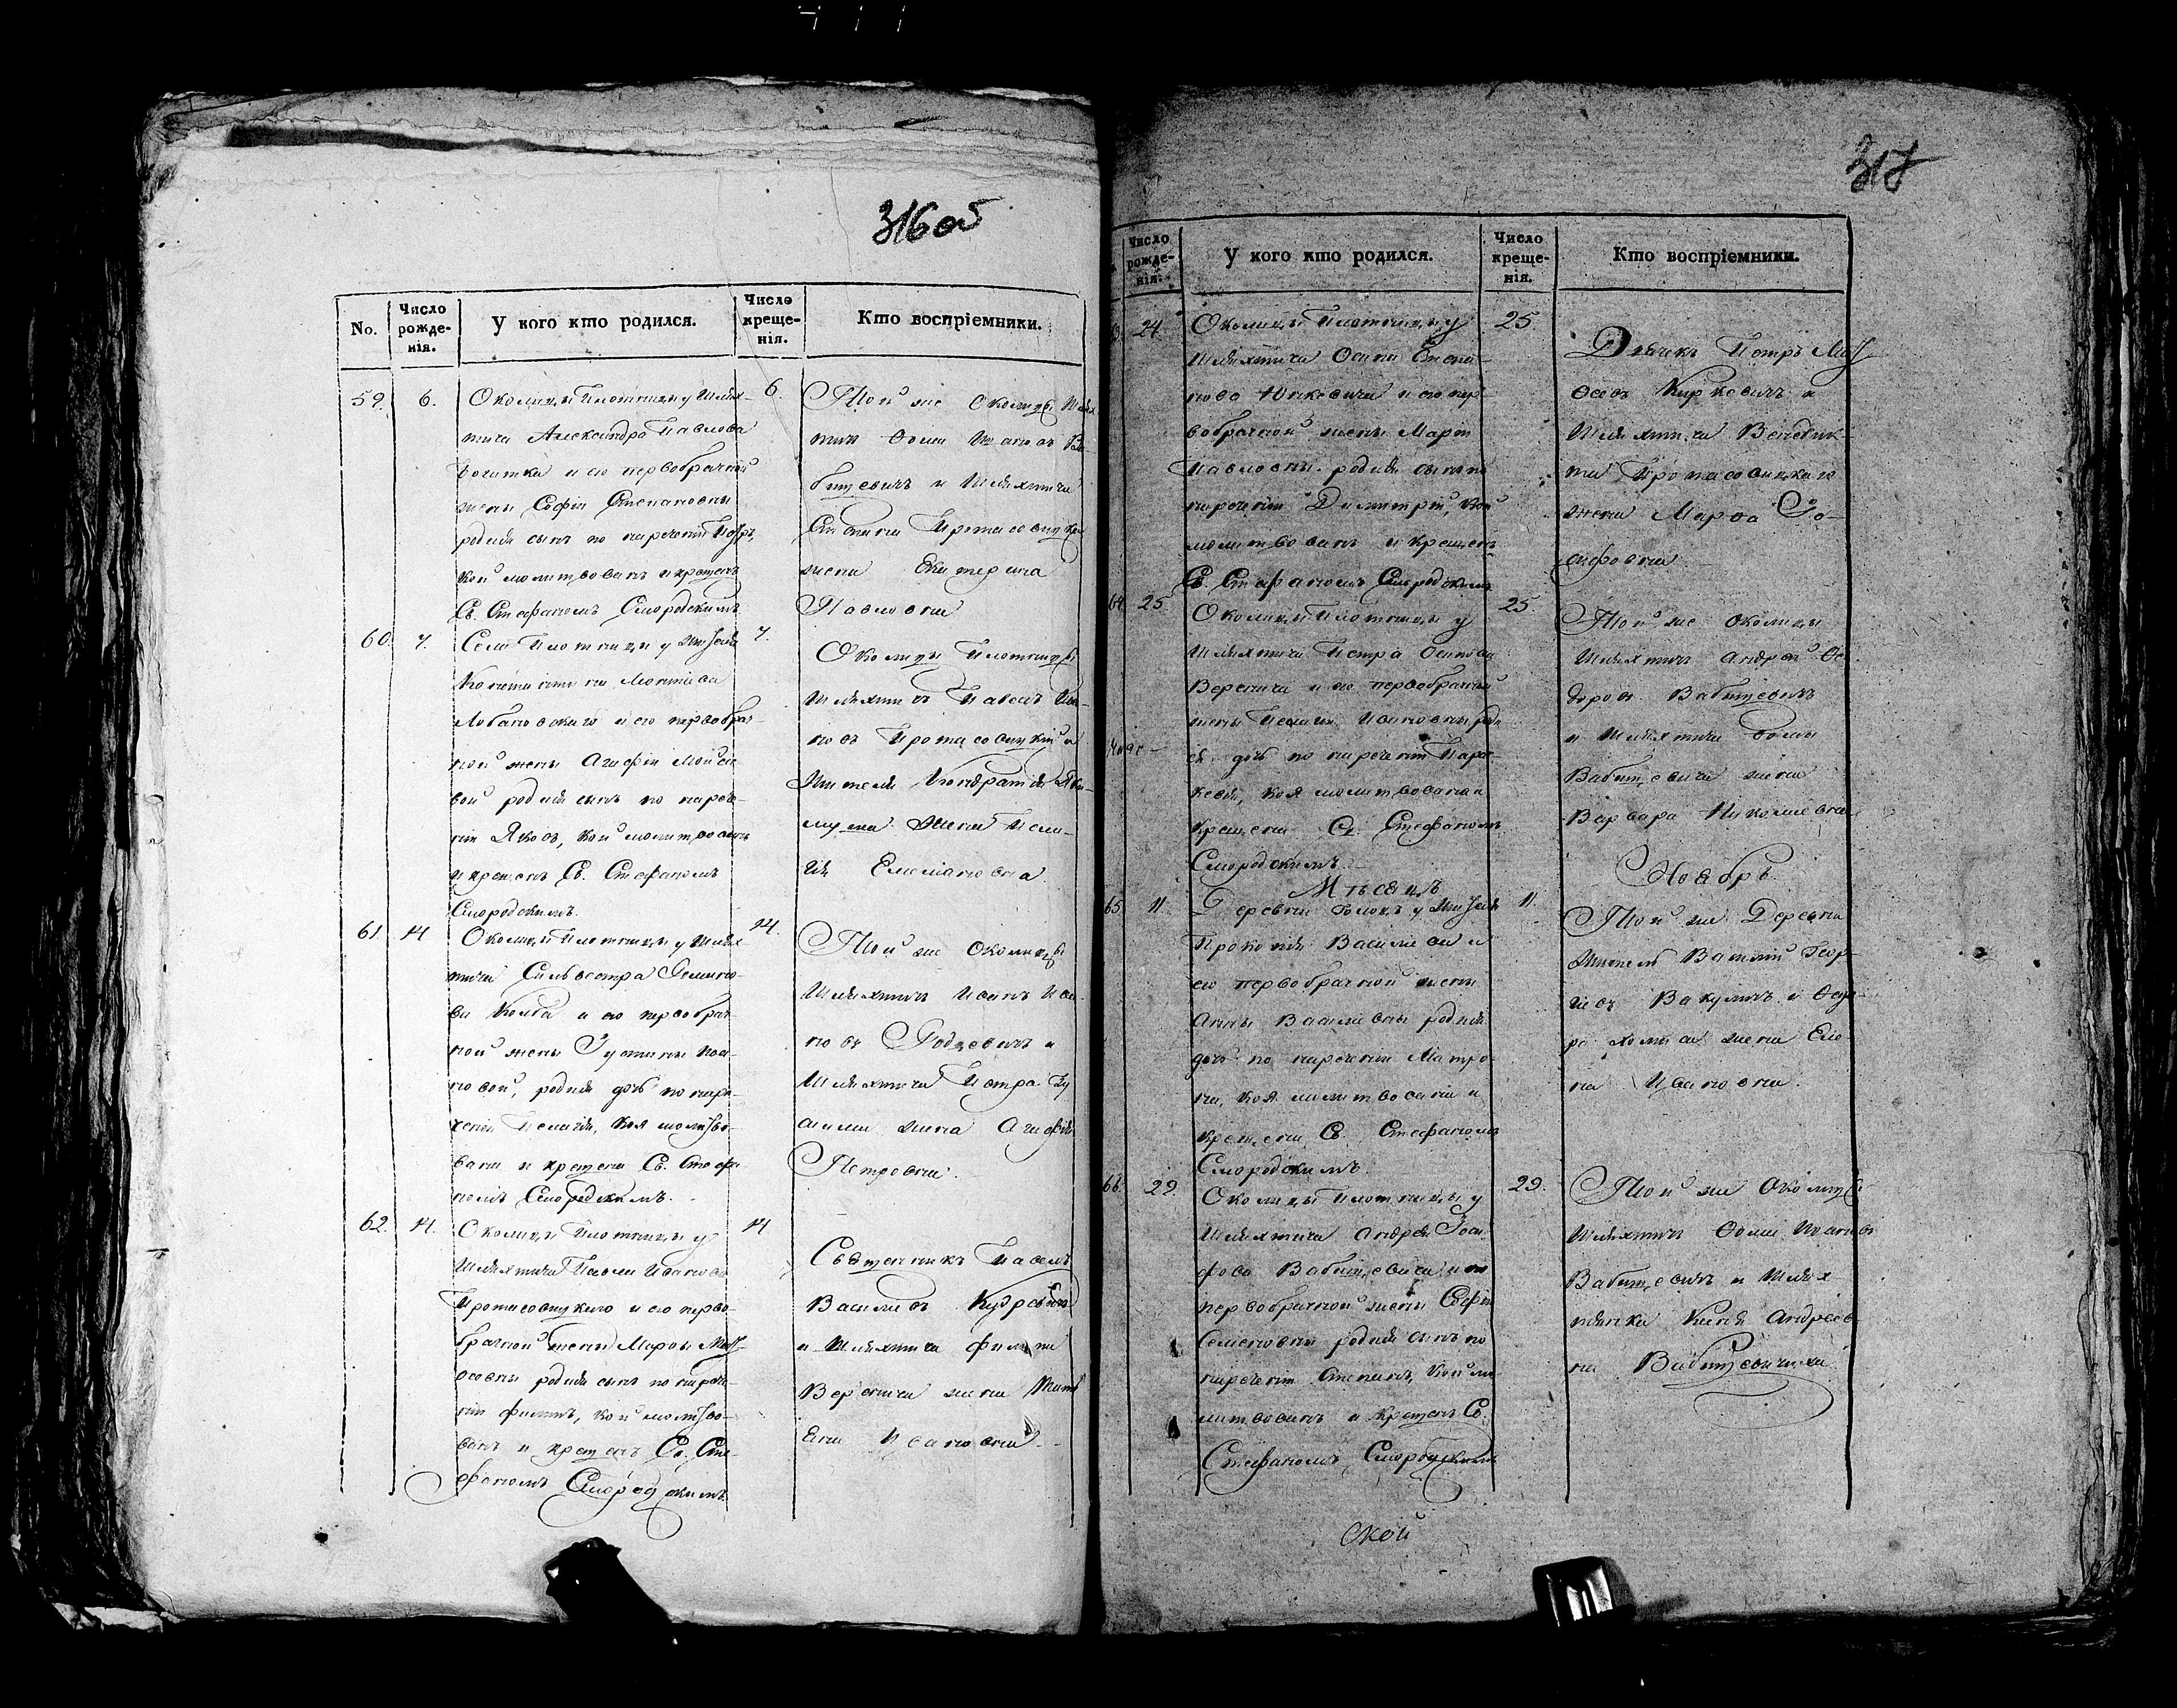 316 об
No.
Число рожде-нія.
У кого кто родился.
Число креще-нія.
Кто воспріемники.
59. 6.
Околицы Плотницы у Шлях-
тича Александра Павлова
и его первобрачной
жены Софіи Степановны
родился сынъ по нареченіи Петръ,
кой молитвованъ и крещенъ
Св. Стефаномъ Смородскимъ
6.
Той же Околицы Шлях
тичъ Ѳома Ивановъ Ва-
битцевичъ и Шляхтича
Степана Протасовицкаго
жена Екатерина
Павловна
60. 7.
Села Плотницы у жителя
Константина Леонтіева
Лобановскаго и его первобрач-
ной жены Агафіи Мойсе-
вой родился сынъ по нарече-
ніи Яковъ, кой молитвованъ
и крещенъ Св. Стефаномъ
Смородскимъ.
7.
Околицы Плотницы
Шляхтичъ Павелъ Ива-
новъ Протасовицкій и
жителя Кондратія
жена Пела-
гія Емеліановна
61. 14
Околицы Плотницы у Шлях
тича Сильвестра
ва Колба и его первобрач
ной жены Іустины Ива-
новой, родилась дочь по наре-
ченіи Пелагія, коя молитво-
вана и крещена Св. Стефа
номъ Смородскимъ.
14.
Той же Околицы
Шляхтичъ Иванъ Ива-
новъ Родцевичъ и
Шляхтича Петра
жена Агафія
Петровна.
62. 14.
Околицы Плотницы у
Шляхтича Павла Иванова
Протасовицкаго и его перво-
брачной жены Марѳы Мат-
ѳеовны родился сынъ по нарече-
ніи Филипъ, кой молитво-
ванъ и крещенъ Св. Сте-
фаномъ Смородскимъ
14
Священникъ Павелъ
Василіевъ Кудревичъ
и Шляхтича Филипа
Веренича жена
Ивановна
317
Число рожде-нія.
У кого кто родился.
Число креще-нія.
Кто воспріемники.
24.
Околицы Плотницы у
Шляхтича Осипа Степа-
нова Юнкевича и его пер-
вобрачной жены Маріи
Павловны родился сынъ по
нареченіи Димитрій, кой
молитвованъ и крещенъ
Св. Стефаномъ Смородскимъ
25.
Дьячекъ Петръ Мат
ѳеевъ Киркевичъ и
Шляхтича Венедик-
та Протасовицкаго
жена Марѳа Іо-
сифовна
64. 25
Околицы Плотницы у
Шляхтича Петра Осипова
Веренича и его первобрачной
жены Пелагіи Ивановны роди
ся дочь по нареченіи Парас-
кевія, коя молитвована и
крещена Св. Стефаномъ
Смородскимъ.
25.
Той же околицы
Шляхтичъ Андрей Ѳе
доровъ Вабитцевичъ
и Шляхтича Ѳомы
Вабитцевича жена
Варвара Николаевна
Мѣсяцъ Ноябрь
65. 11.
Деревни у жителя
Прокопія Василіева и
его первобрачной жены
Анны Василіевны родилась
дочь по нареченіи Матро-
на, коя молитвована и
крещена Св. Стефаномъ
Смородскимъ.
11.
Той же Деревни
житель Василій Геор-
гіевъ Вакуличъ и Ѳедо-
ра жена Еле-
на Ивановна.
66. 29.
Околицы Плотницы у
Шляхтича Андрея Іоси
фова Вабитцевича и его
первобрачной жены Софіи
Семеновны родился сынъ по
нареченіи Степанъ, кой мо-
литвованъ и крещенъ Св.
Стефаномъ Смородскимъ
29.
Той же Околицы
Шляхтичъ Ѳома Ивановъ
Вабитцевичъ и Шлях-
тянка Андреев-
на Вабитцевичиха
ской